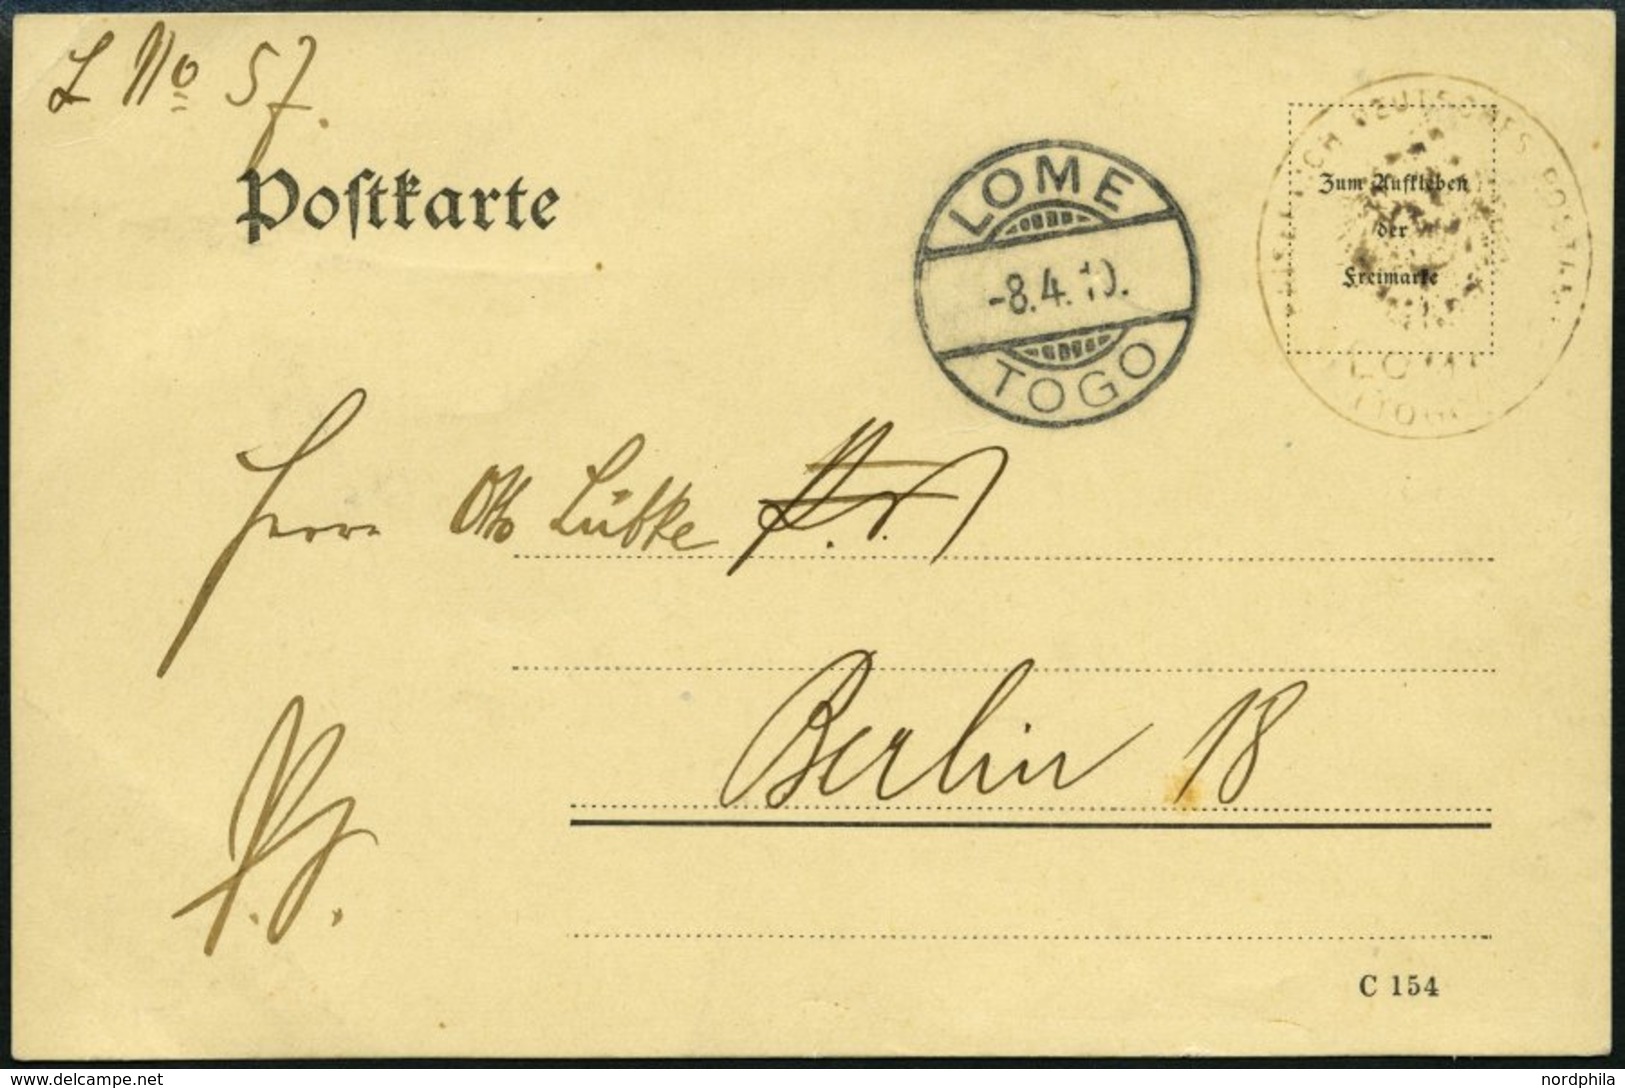 L No 57.
Postkarte
LOME
-8.4.10.
TOGO
DEUTSCHES POST
Zum Aufkleben
der
Freimarke
LOME
(TOGO
Herrn Otto Lübke
Berlin 18
C 154
delcampe.net
nordphila